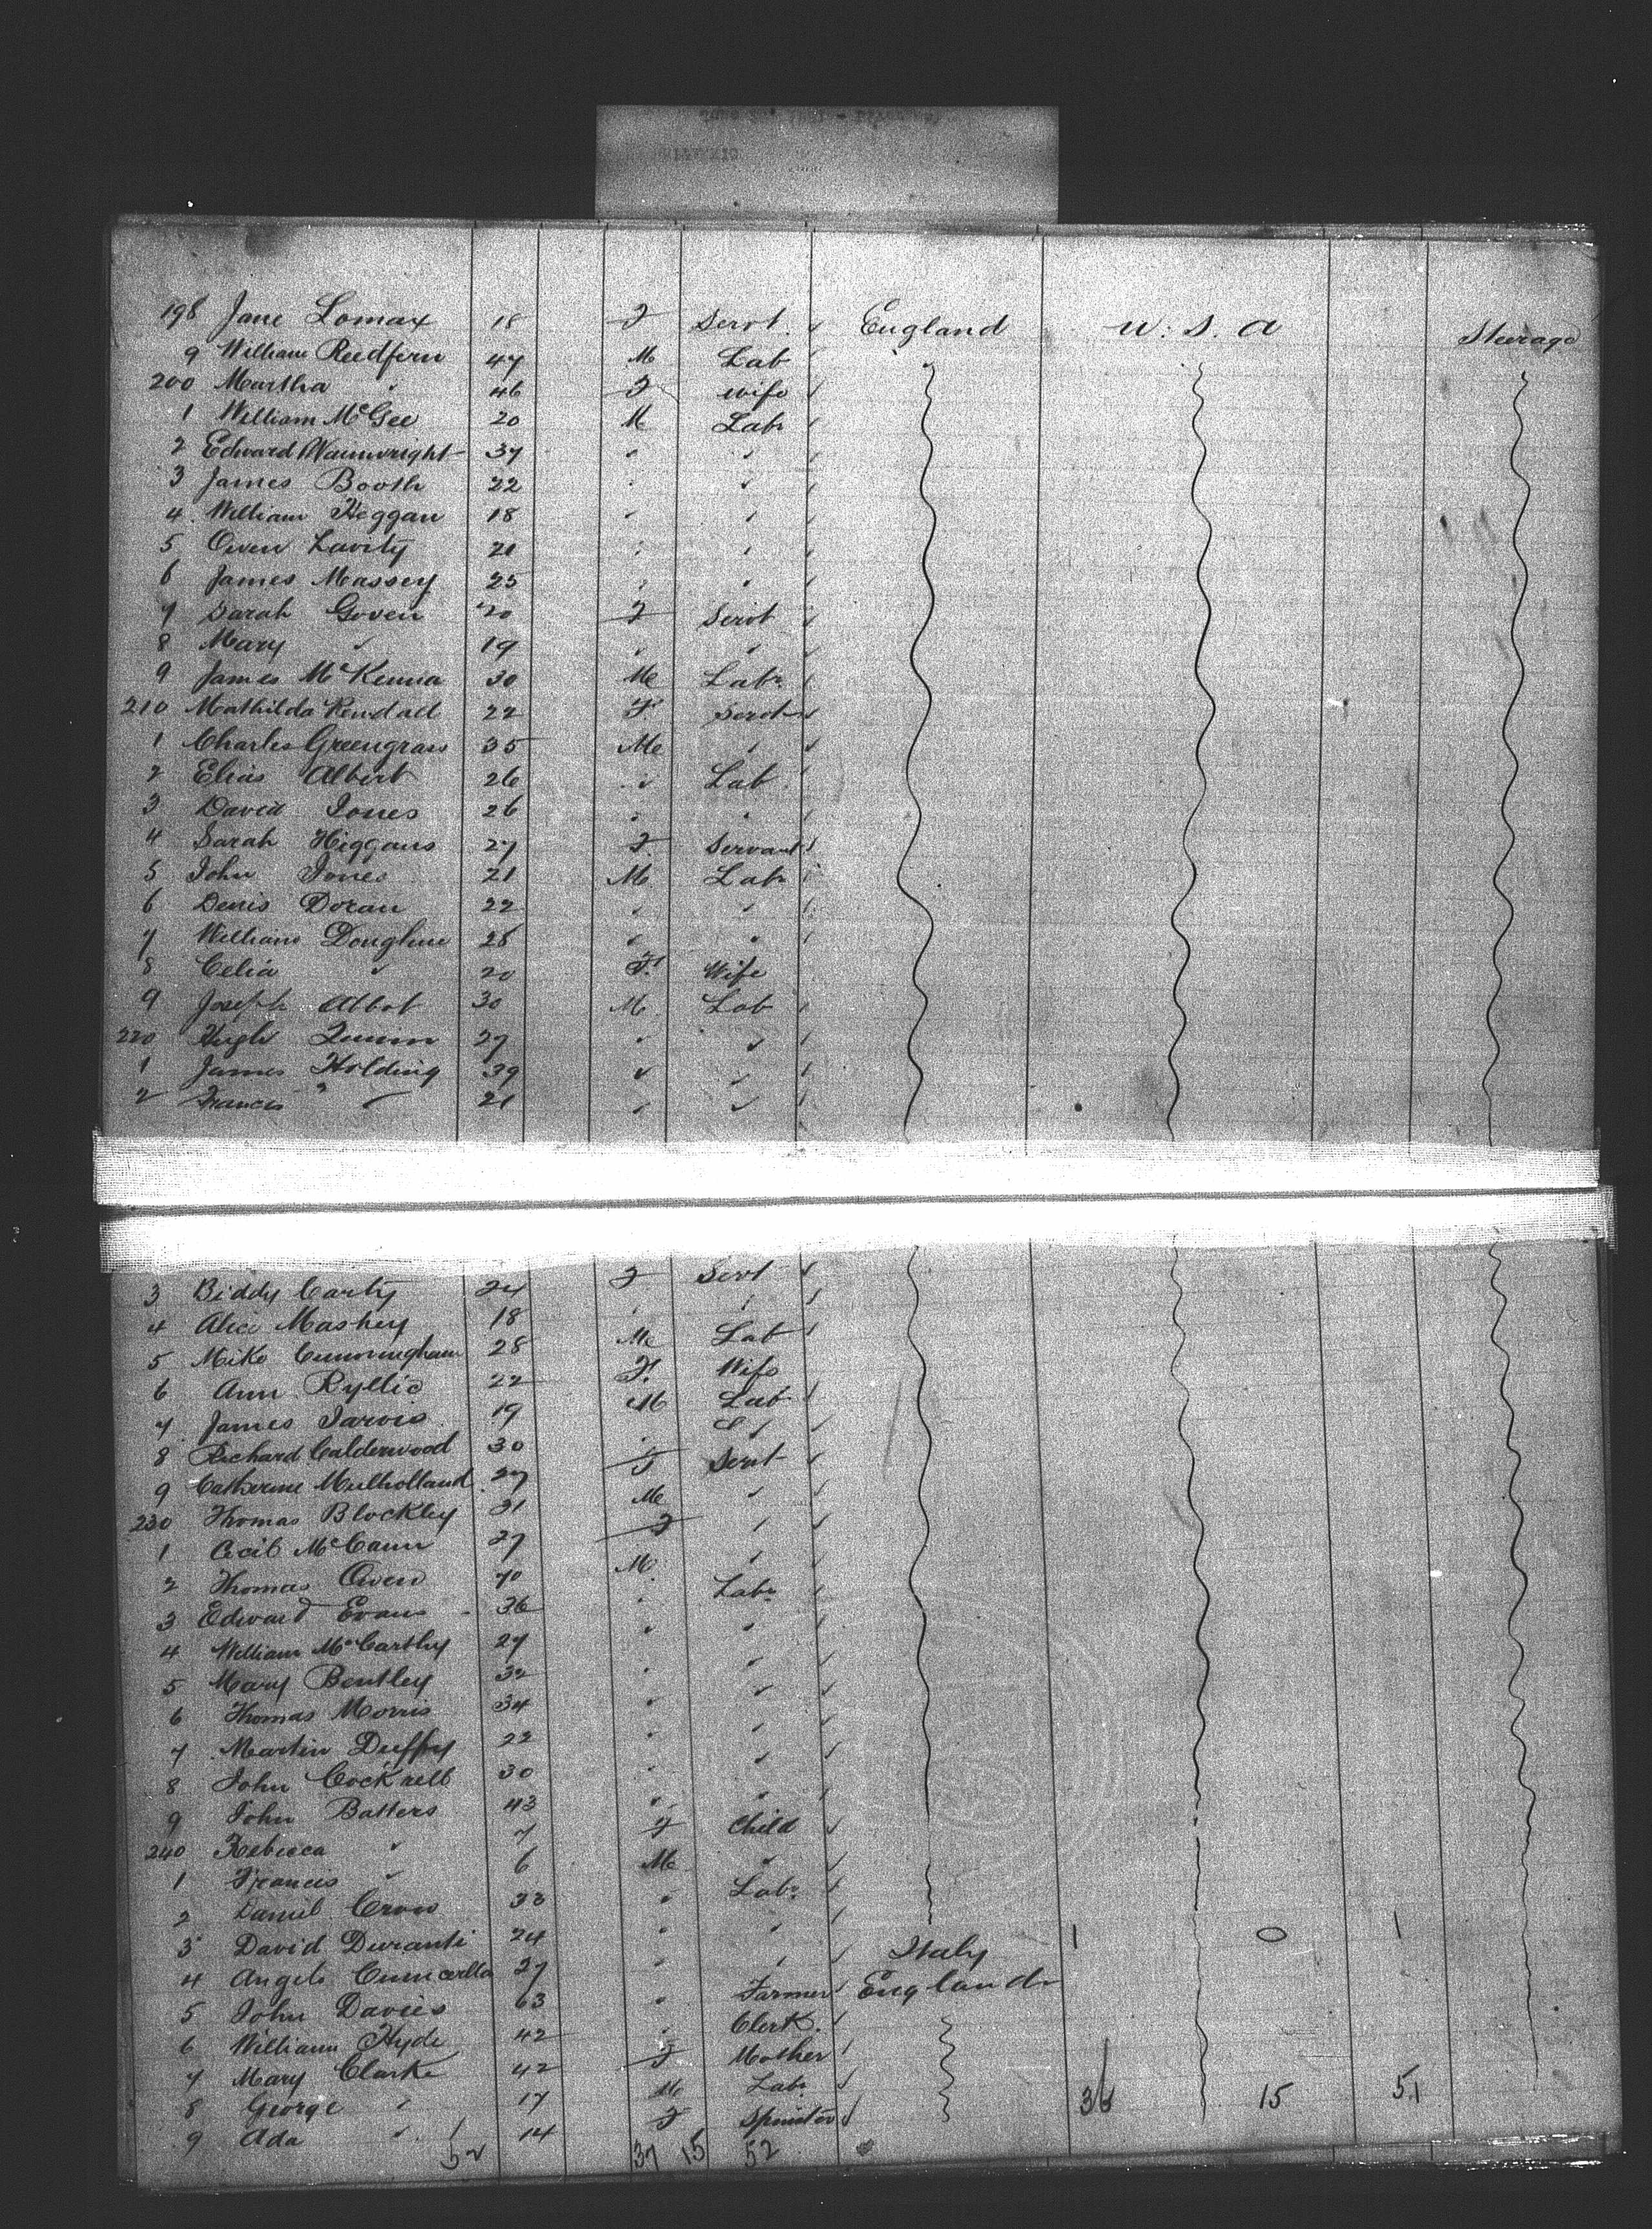 198 Jane Lomax 18 F Servt. England U. S. A Steerage
9 William Reedfern 47 M Lab
200 Martha " 46 F Wife
1 William McGee 20 M Labr
2 Edward Wainwright 37 " "
3 James Booth 22 " "
4 William Heggan 18 " "
5 Owen Lavity 21 " "
6 James Massey 25 " "
7 Sarah Goven 20 F Servt
8 Mary " 19 " "
9 James McKenna 30 M Labr.
210 Mathilda Kendall 22 F. Servt
1 Charles Greengrass 35 M "
2 Elias Albert 26 " Lab
3 David Jones 26 " "
4 Sarah Higgans 27 F. Servant
5 John Jones 21 M Labr
6 Denis Doran 22 " "
7 William Donghue 28 " "
8 Celia " 20 F. Wife
9 Joseph Abbot 30 M Lab
220 Hugh Quinn 27 " "
1 James Holding 39 " "
2 Francis " 21 " "
3 Biddy Carty 24 F Servt
4 Alice Mashey 18 " "
5 Mike Cunningham 28 M Lab
6 Ann Ryllic 22 F. Wife
7 James Jarvis 19 M Lab
8 Richard Calderwood 30 " "
9 Catherine Mulholland 27 F Servt
230 Thomas Blockley 31 M "
1 Cecil McCann 27 F "
2 Thomas Owen 70 M. "
3 Edward Evans 36 " Labr.
4 William McCarthy 27 " "
5 Mary Bentley 32 " "
6 Thomas Morris 34 " "
7 Martin Duffy 22 " "
8 John Cockrell 30 " "
9 John Batters 43 " "
240 Rebecca " 7 F Child
1 Francis " 6 M "
2 Daniel Crow 33 " Labr.
3 David Duranti 24 " " Italy 1 0 1
4 Angelo 27 " " England
5 John Davies 63 " Farmer
6 William Hyde 42 " Clerk.
7 Mary Clarke 42 F Mother
8 George " 17 M Labr.
9 Ada " 14 F Spinster 36 15 51
52 37 15 52